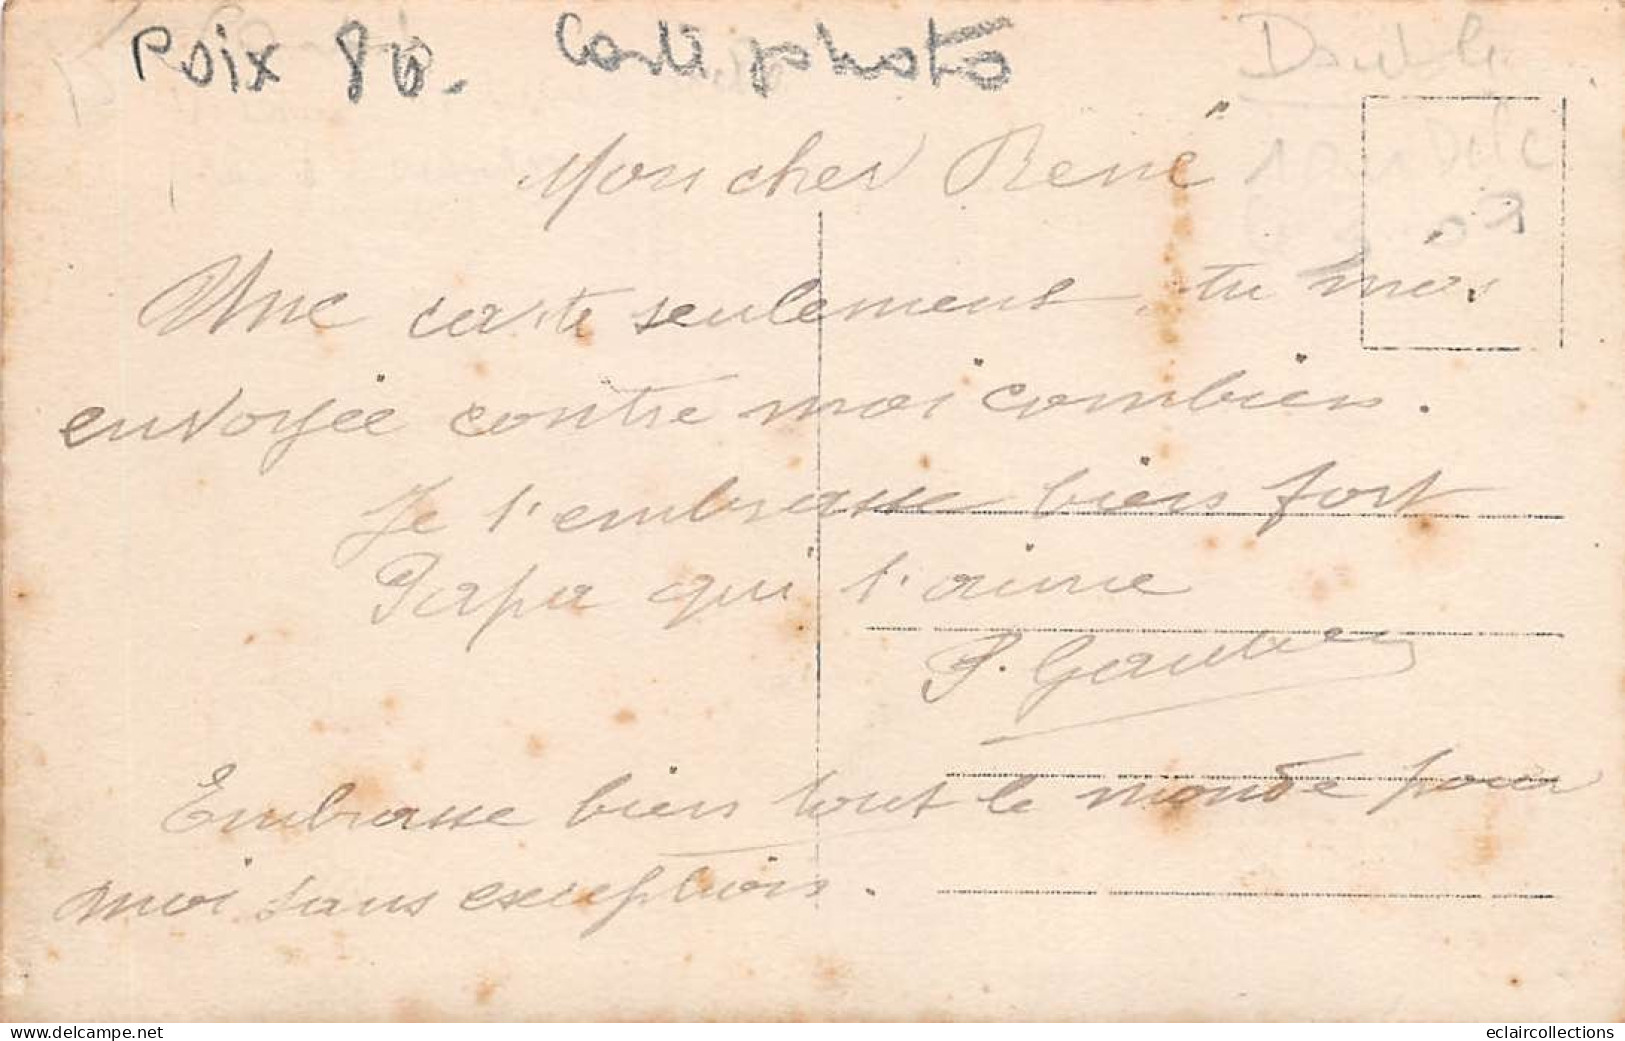 Poix 80. Carte photo
Double
Mon cher René
Une carte seulement tu mas
envoyée contre moi combien.
Je t'embrasse bien fort
Papa qui t'aime
Embrasse bien tout le monde pour
moi sans exception.
eclaircollections
www.delcampe.net